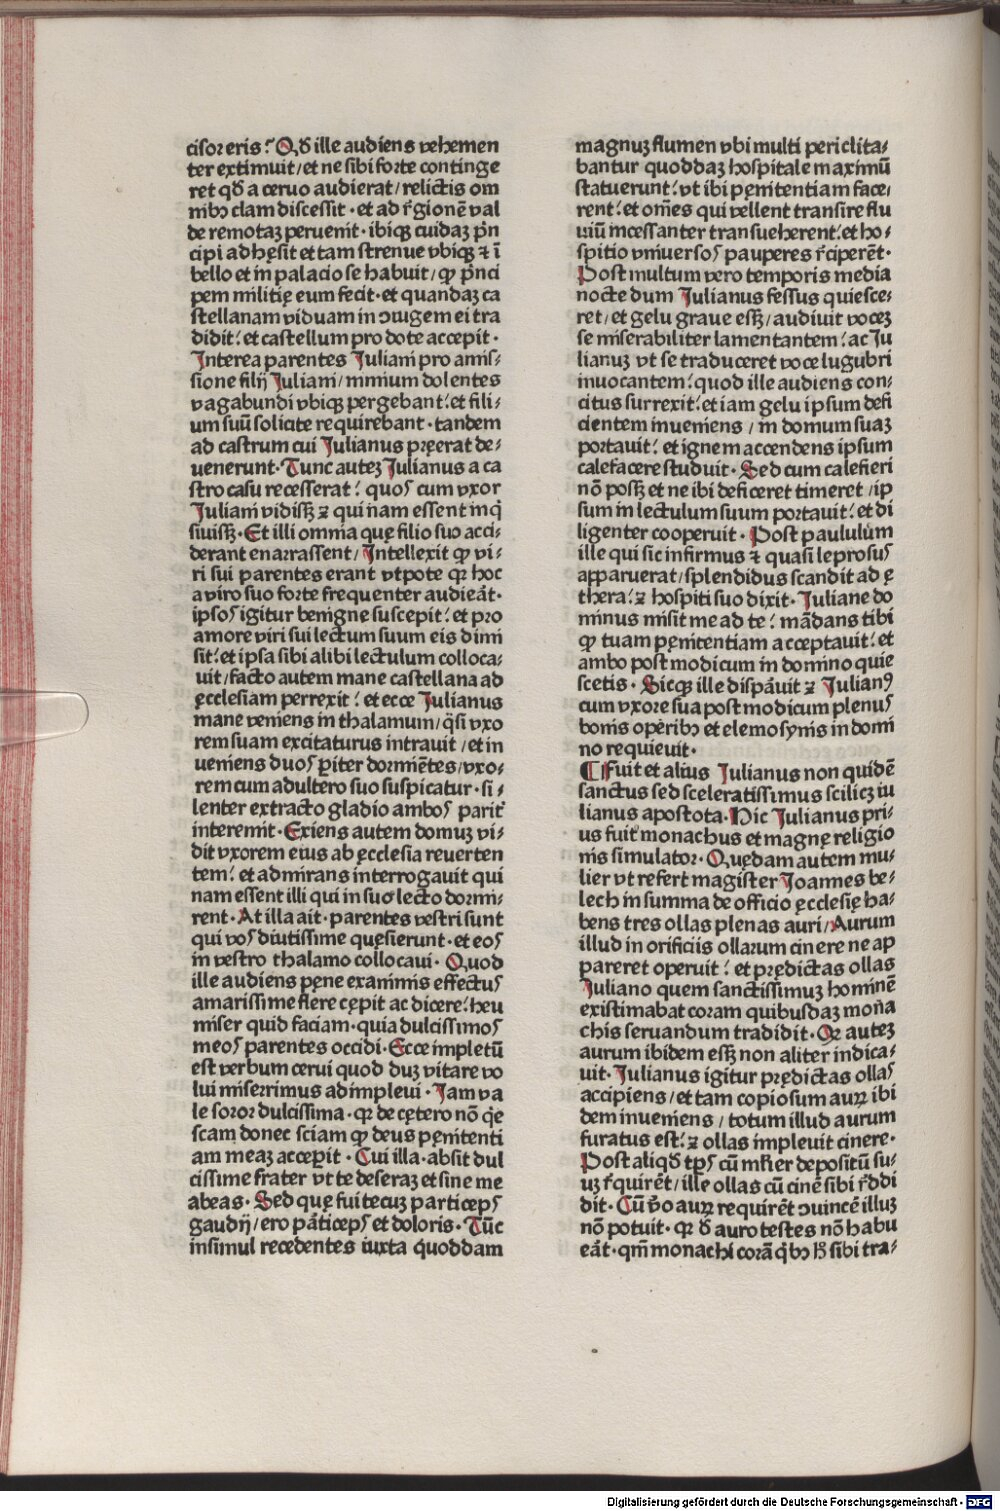 cisor eris? Qd̄ ille audiens vehemen
ter extimuit/ et ne sibi forte continge
ret qd̄ a ceruo audierat/ relictis om
nibꝯ clam discessit · et ad r̄gionē val
de remotaꝫ peruenit · ibiqꝫ cuidaꝫ p̄n
cipi adhęsit et tam strenue vbiqꝫ ⁊ ī
bello et in palacio se habuit/ ꝙ p̄nci
pem militię eum fecit · et quandaꝫ ca
stellanam viduam in ↄiugem ei tra
didit: et castellum pro dote accepit ·
Interea parentes Juliani pro amis-
sione filij Juliani/ nimium dolentes
vagabundi vbiqꝫ pergebant: et fili-
um suū solicite requirebant · tandem
ad castrum cui Julianus pręerat de-
uenerunt · Tunc auteꝫ Julianus a ca
stro casu recesserat: quos cum vxor
Juliani vidisꝫ ⁊ qui nam essent inq̇
siuisꝫ · Et illi omnia quę filio suo acci-
derant enarrassent/ Intellexit ꝙ vi-
ri sui parentes erant vtpote qꝛ hoc
a viro suo forte frequenter audieāt ·
ipsos igitur benigne suscepit: et pro
amore viri sui lectum suum eis dimi
sit: et ipsa sibi alibi lectulum colloca-
uit/ facto autem mane castellana ad
ęcclesiam perrexit: et ecce Julianus
mane veniens in thalamum/ q̇si vxo
rem suam excitaturus intrauit / et in
ueniens duos ꝑiter dormiētes/ vxo-
rem cum adultero suo suspicatur · si-
lenter extracto gladio ambos parit̄
interemit · Exiens autem domuꝫ vi-
dit vxorem eius ab ęcclesia reuerten
tem: et admirans interrogauit qui
nam essent illi qui in suo lecto dormi-
rent · At illa ait · parentes vestri sunt
qui vos diutissime quęsierunt · et eos
in vestro thalamo collocaui · Quod
ille audiens pęne exanimis effectus
amarissime flere cępit ac dicere: heu
miser quid faciam · quia dulcissimos
meos parentes occidi · Ecce impletū
est verbum cerui quod duꝫ vitare vo
lui miserrimus adimpleui · Jam va
le soror dulcissima · qꝛ de cętero nō q̇e
scam donec sciam ꝙ deus pęnitenti
am meaꝫ acceꝑit · Cui illa · absit dul
cissime frater vt te deseraꝫ et sine me
abeas · Sed quę fui tecuꝫ particeps
gaudij/ ero pāticeps et doloris · Tūc
insimul recedentes iuxta quoddam
magnuꝫ flumen vbi multi periclita-
bantur quoddaꝫ hospitale maximū
statuerunt: vt ibi pęnitentiam face-
rent: et om̄es qui vellent transire flu
uiū incessanter transueherent: et ho-
spitio vniuersos pauperes r̄ciperēt ·
Post multum vero temporis media
nocte dum Julianus fessus quiesce-
ret/ et gelu graue esꝫ/ audiuit voceꝫ
se miserabiliter lamentantem: ac Ju
lianuꝫ vt se traduceret voce lugubri
inuocantem: quod ille audiens con-
citus surrexit: et iam gelu ipsum defi
cientem inueniens / in domum suaꝫ
portauit: et ignem accendens ipsum
calefacere studuit · Sed cum calefieri
nō posꝫ et ne ibi deficeret timeret / ip
sum in lectulum suum portauit: et di
ligenter cooperuit · Post paululum
ille qui sic infirmus ⁊ quasi leprosus
apparuerat/ splendidus scandit ad ę
thera: ⁊ hospiti suo dixit · Juliane do
minus misit me ad te: mādans tibi
ꝙ tuam pęnitentiam acceptauit: et
ambo post modicum in domino quie
scetis · Sicqꝫ ille dispāuit ⁊ Julianꝰ
cum vxore sua post modicum plenus
bonis operibꝯ et elemosynis in domi
no requieuit ·
¶ Fuit et alius Julianus non quidē
sanctus sed sceleratissimus scilicꝫ iu
lianus apostota · Hic Julianus pri-
us fuit monachus et magnę religio
nis simulator · Quędam autem mu-
lier vt refert magister Joannes be-
lech in summa de officio ęcclesię ha-
bens tres ollas plenas auri/ Aurum
illud in orificiis ollarum cinere ne ap
pareret operuit: et prędictas ollas
Juliano quem sanctissimuꝫ hominē
existimabat coram quibusdaꝫ mona
chis seruandum tradidit · Qꝛ auteꝫ
aurum ibidem esꝫ non aliter indica-
uit · Julianus igitur prędictas ollas
accipiens/ et tam copiosum auꝝ ibi
dem inueniens / totum illud aurum
furatus est: ⁊ ollas impleuit cinere ·
Post aliqd̄ tꝑs cū mƚier depositū su-
uꝫ r̄quirēt/ ille ollas cū cinē sibi r̄ddi
dit · Cū v̄o auꝝ requirēt ↄuincē illuꝫ
nō potuit · qꝛ d̄ auro testes nō habu
eāt · qm̄ monachi corā q̇bꝯ h̄º sibi tra-
Digitalisierung gefördert durch die Deutsche Forschungsgemeinschaft - DFG